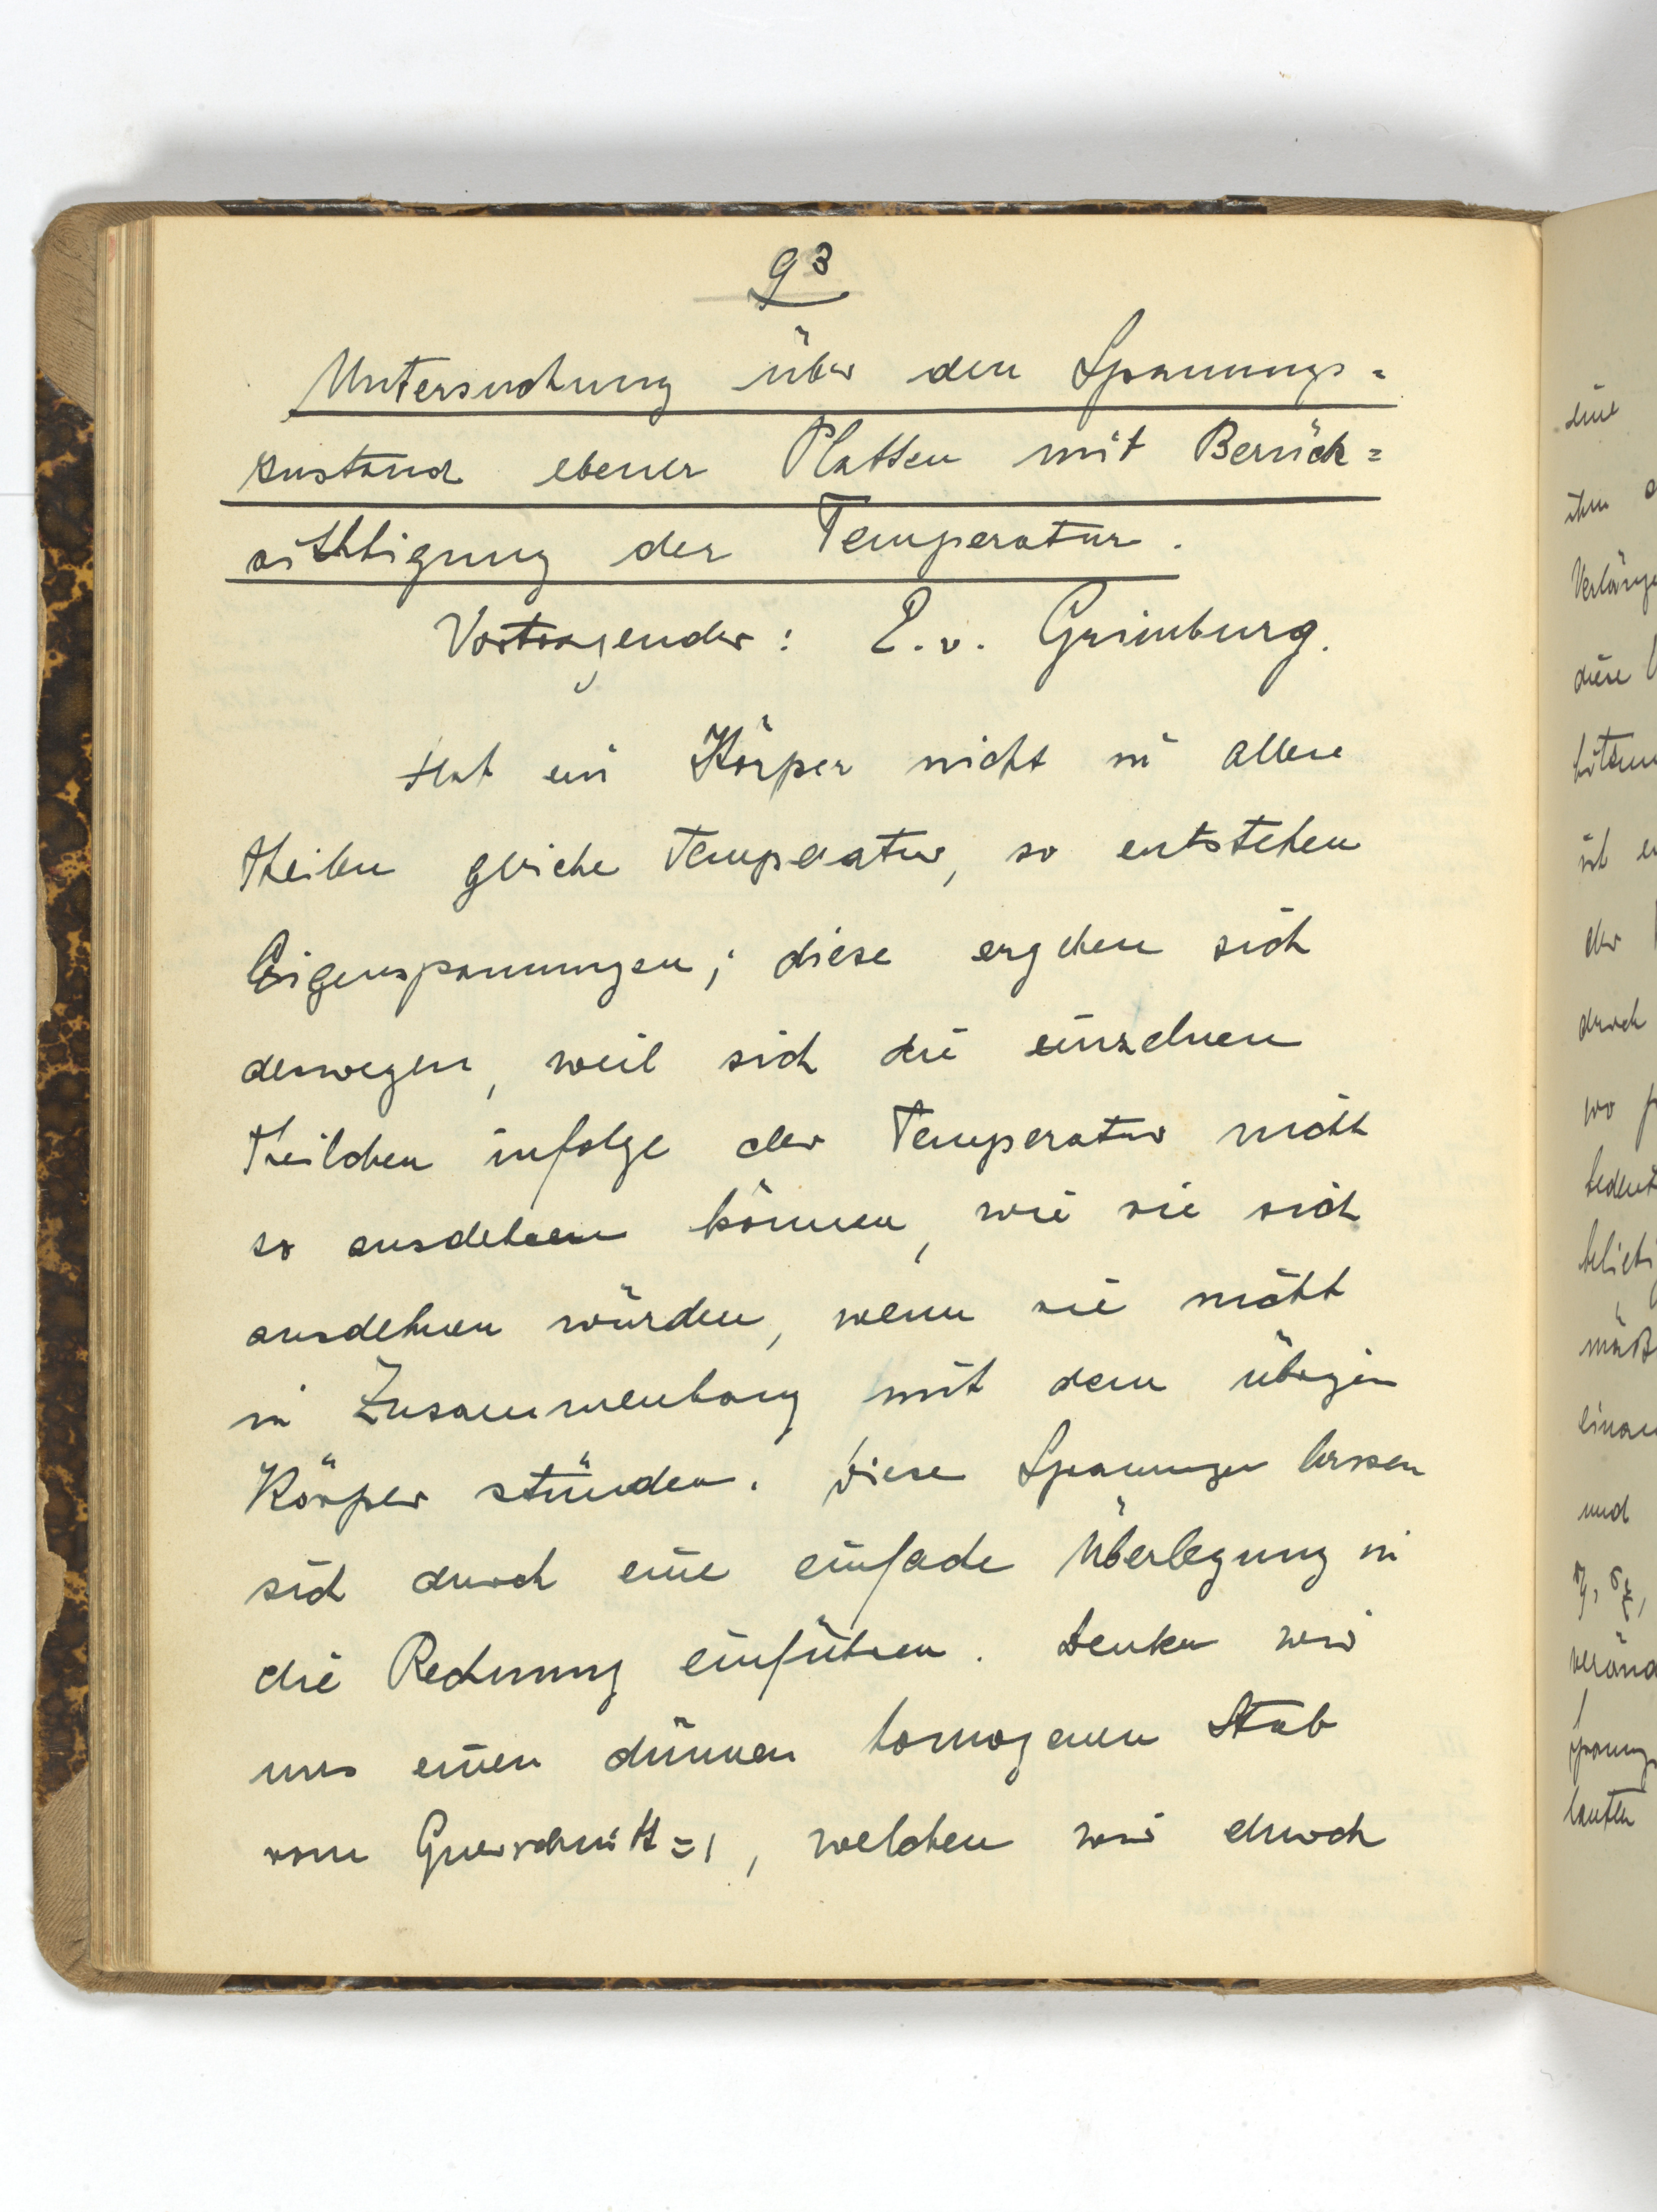 93
Untersuchung über den Spannungs=
zustand ebener Platten mit Berück=
sichtigung der Temperatur.
Vortragender: R. v. Grimburg.
Hat ein Körper nicht in allen
Theilen gleiche Temperatur, so entstehen
Eigenspannungen; diese ergeben sich
deswegen, weil sich die einzelnen
Theilchen infolge der Temperatur nicht
so ausdehnen können, wie sie sich
ausdehnen würden, wenn sie nicht
in Zusammenhang mit dem übrigen
Körper stünden. Diese Spannungen lassen
sich durch eine einfache Überlegung in
die Rechnung einführen. Denken wir
uns einen dünnen homogenen Stab
vom Querschnitt=1, welchen wir durch
eine
ihm
diese
ist
der
durch
wo
und